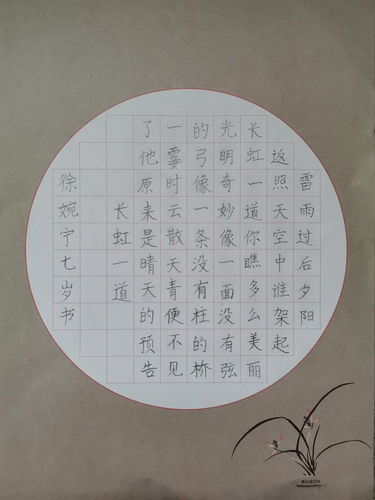 雷雨过后夕阳
返照天空中谁架起
长虹一道你瞧多么美丽
光明奇妙像一面没有弦
的弓像一条没有柱的桥
一霎时云散天青便不见
了他原来是晴天的预告
长虹一道
徐婉宁七岁书